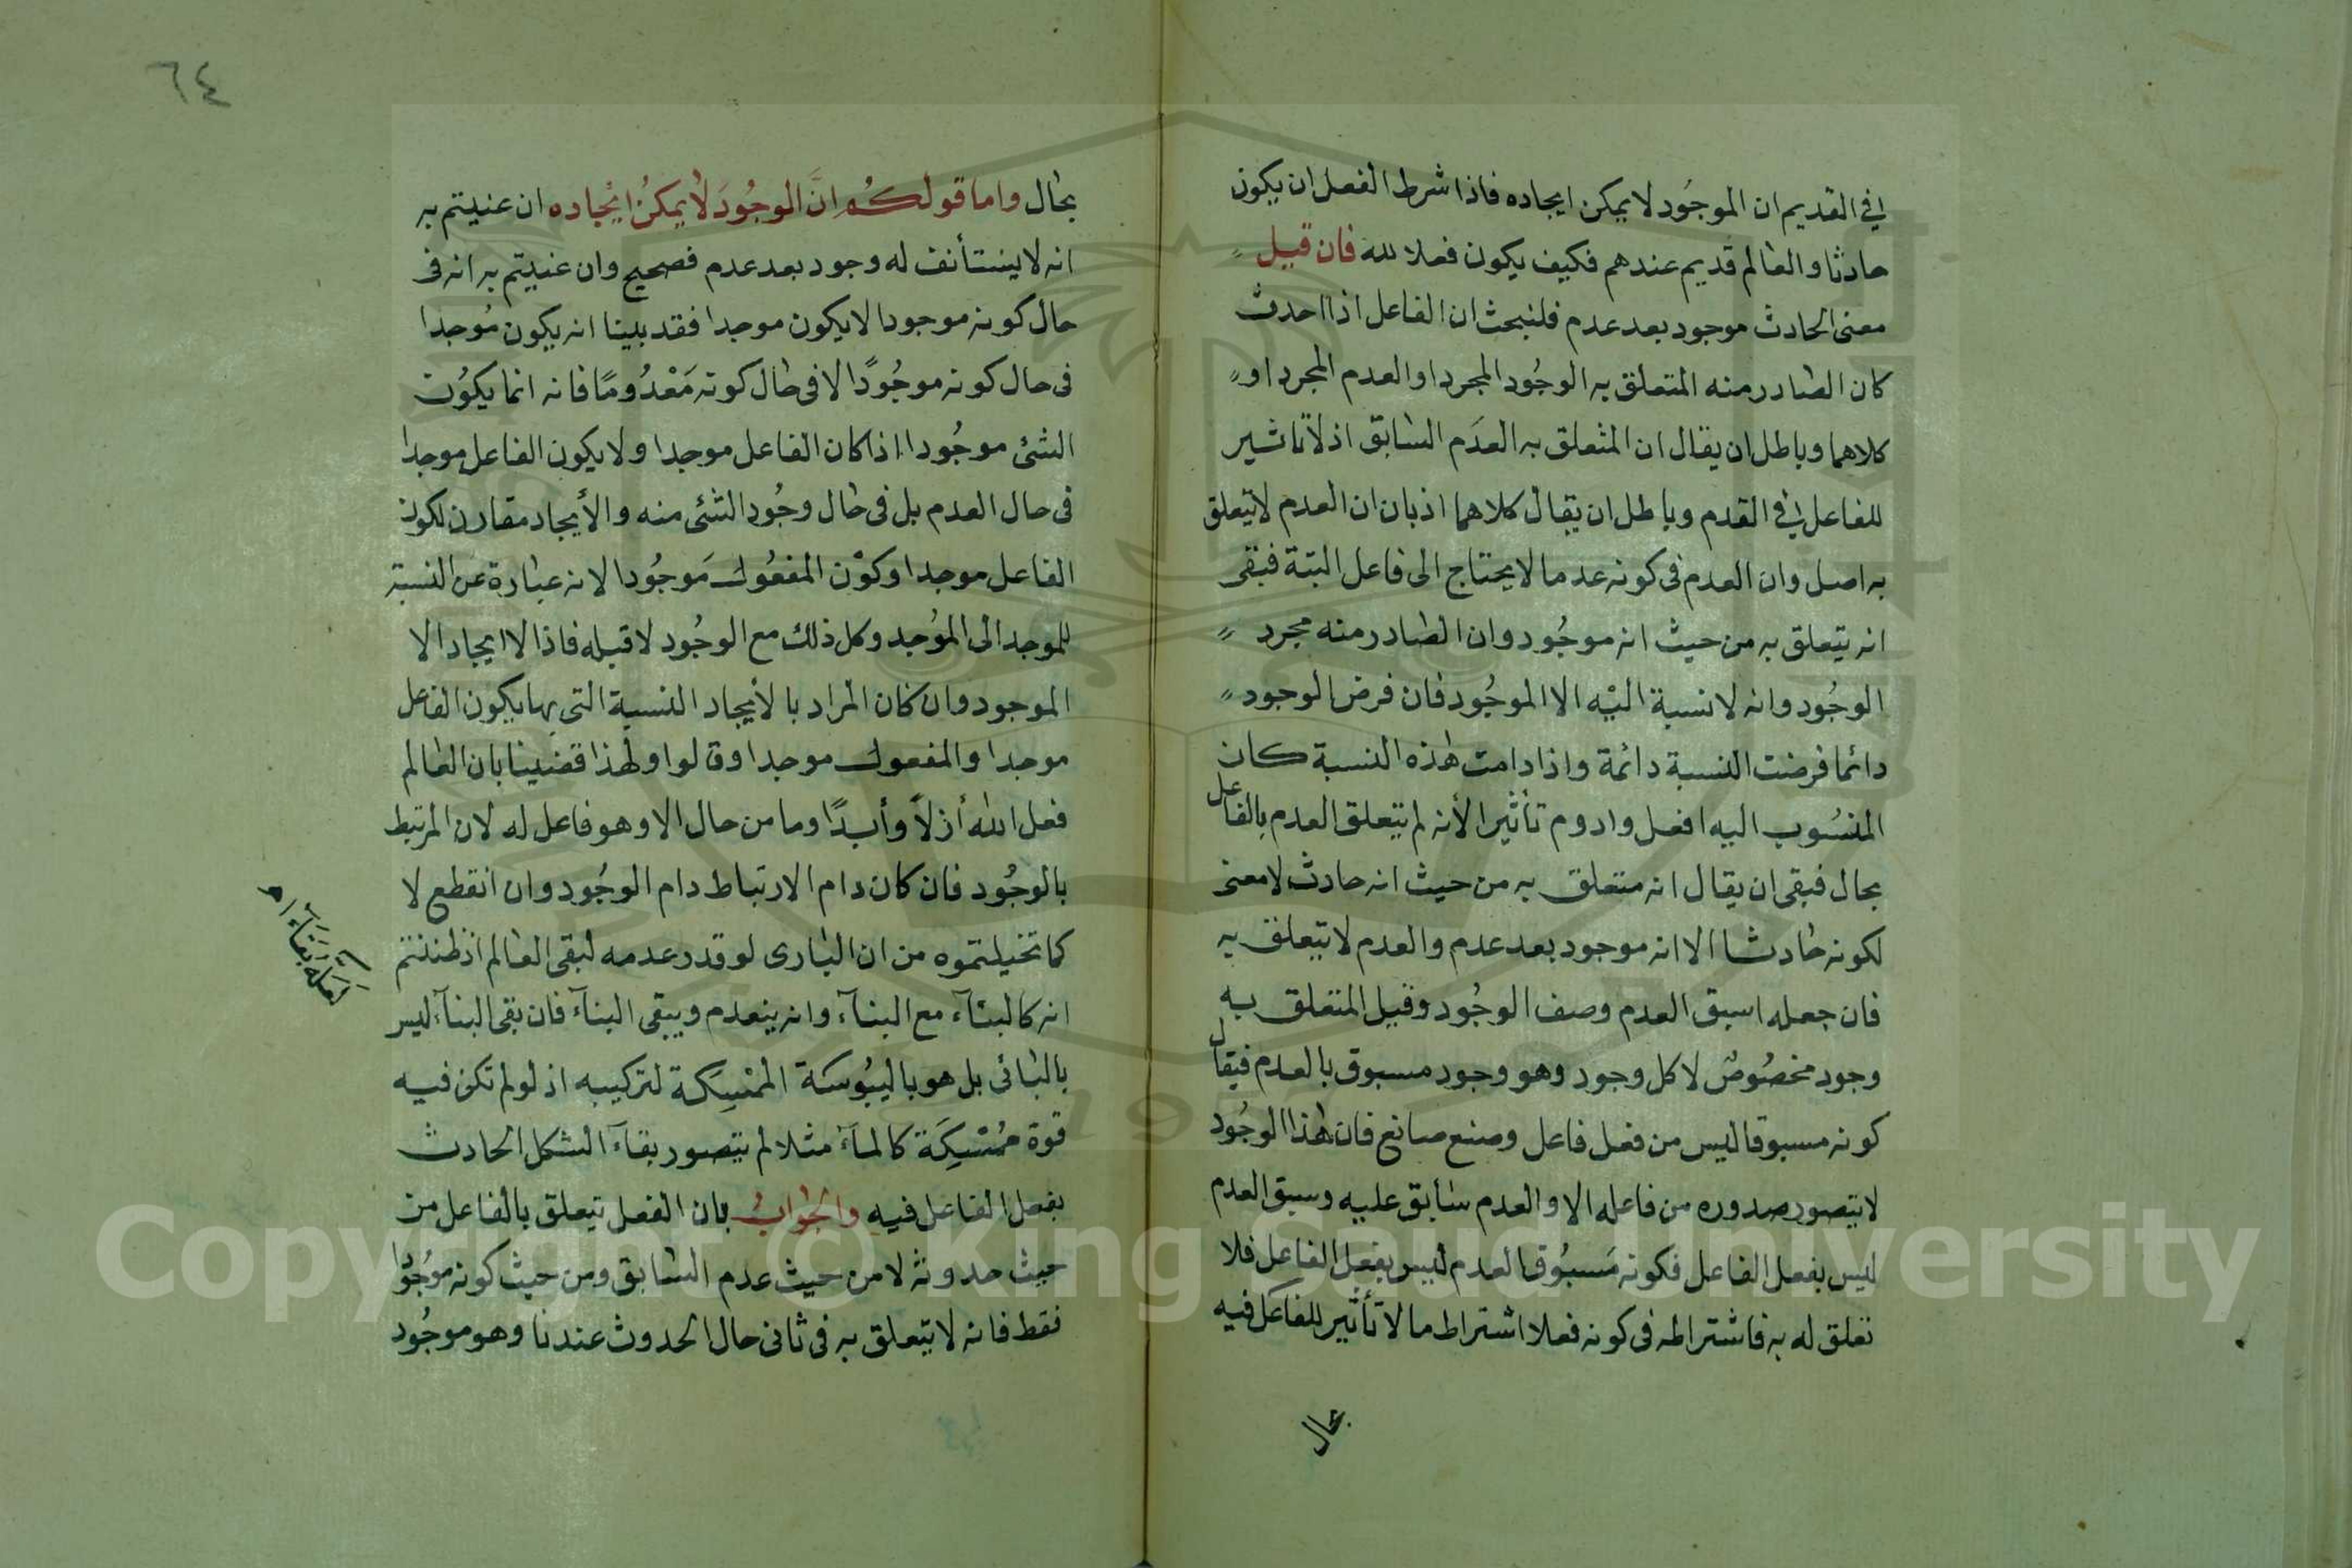 في القديم ان الموجُود لا يمكن ايجاده فاذا شرط الفعل ان يكون
حادثا والعالم قديم عندهم فكيف يكون فعلا لله فان قيل
معنى الحادث موجود بعد عدم فلنبحث ان الفاعل اذا احدث
كان الصادر منه المتعلق به الوجُود المجرد او العدم المجرد او
كلاهما وباطل ان يقال ان المتعلق به العدَم السابق اذ لا تاثير
للفاعل في القدم وباطل ان يقال كلاهما اذ بان ان العدم لا يتعلق
به اصل وان العدم فى كونه عدما لا يحتاج الى فاعل البتة فبقى
انه يتعلق به من حيث انه موجُود وان الصادر منه مجرد
الوجُود وانه لا نسبة اليْه الا الموجُود فان فرض الوجود
دائما فرضت النسبة دائمة واذا دامت هذه النسبة كان
المنسُوب اليه افعل وادوم تأثيرا لأنه لم يتعلق العدم بالفاعل
بحال فبقى ان يقال انه متعلق به من حيث انه حادث لا معنى
لكونه حادثا الا انه موجود بعد عدم والعدم لا يتعلق به
فان جعله اسبق العدم وصف الوجُود وقيل المتعلق به
وجود مخصُوص لا كل وجود وهو وجود مسبوق بالعدم فيقال
كونه مسبوقا ليس من فعل فاعل وصنع صانع فان هذا الوجُود
لا يتصور صدوره من فاعله الا والعدم سابق عليه وسبق العدم
ليس بفعل الفاعل فكونه مَسبُوقا لعدم ليس بفعل الفاعل فلا
تعلق له به فاشتراطه فى كونه فعلا اشتراط ما لا تأثير للفاعل فيه
بحال
٦٤
بحال واما قولكُم انَّ الموجُودَ لا يمكنُ ايْجاده ان عنيتم به
انه لا يستأنف له وجود بعد عدم فصحيح وان عنيتم به انه فى
حال كونه موجودا لا يكون موجدا فقد بينا انه يكون مُوجدا
فى حال كونه موجُودًا لا فى حال كونه مَعْدُومًا فانه انما يكوُن
الشئ موجُودا اذا كان الفاعل موجدا ولا يكون الفاعل موجدا
فى حال العدم بل فى حال وجُود الشئ منه والأيجاد مقارن لكون
الفاعل موجدا وكوْن المفعُول مَوجُودا لانه عبارة عن النسبة
للموجد الى الموُجد وكل ذلك مع الوجُود لا قبله فاذا لا ايجاد الا
الموجود وان كان المراد بالأيجاد النسبة التى بها يكون الفاعل
موجدا والمفعول موجدا وقالوا ولهذا قضينا بان العالم
فعل الله أزلاً وأبدًا وما من حال الا وهو فاعل له لان المرتبط
بالوجُود فان كان دام الارتباط دام الوجُود وان انقطع لا
كما تخيلتموه من ان البارى لو قدر عدمه لبقى العالم اذ ظننتم
انه كالبنآء مع البنآء وانه ينعدم ويبقى البنآء فان بقى البنآء ليس
بالبانى بل هو باليبُوسَة الممْسِكَة لتركيبه اذ لو لم تكن فيه
قوة ممُسْكِكَة كالمآء مثلا لم يتصور بقآء الشكل الحادث
بفعل الفاعل فيه والجوابُ بان الفعل يتعلق بالفاعل من
حيث حدوثه لا من حيث عدم السابق ومن حيث كونه موجُودا
فقط فانه لا يتعلق به فى ثانى حال الحدوث عندنا وهو موجُود
لعله بَقَاءَ
Copyright © King Saud University
1957